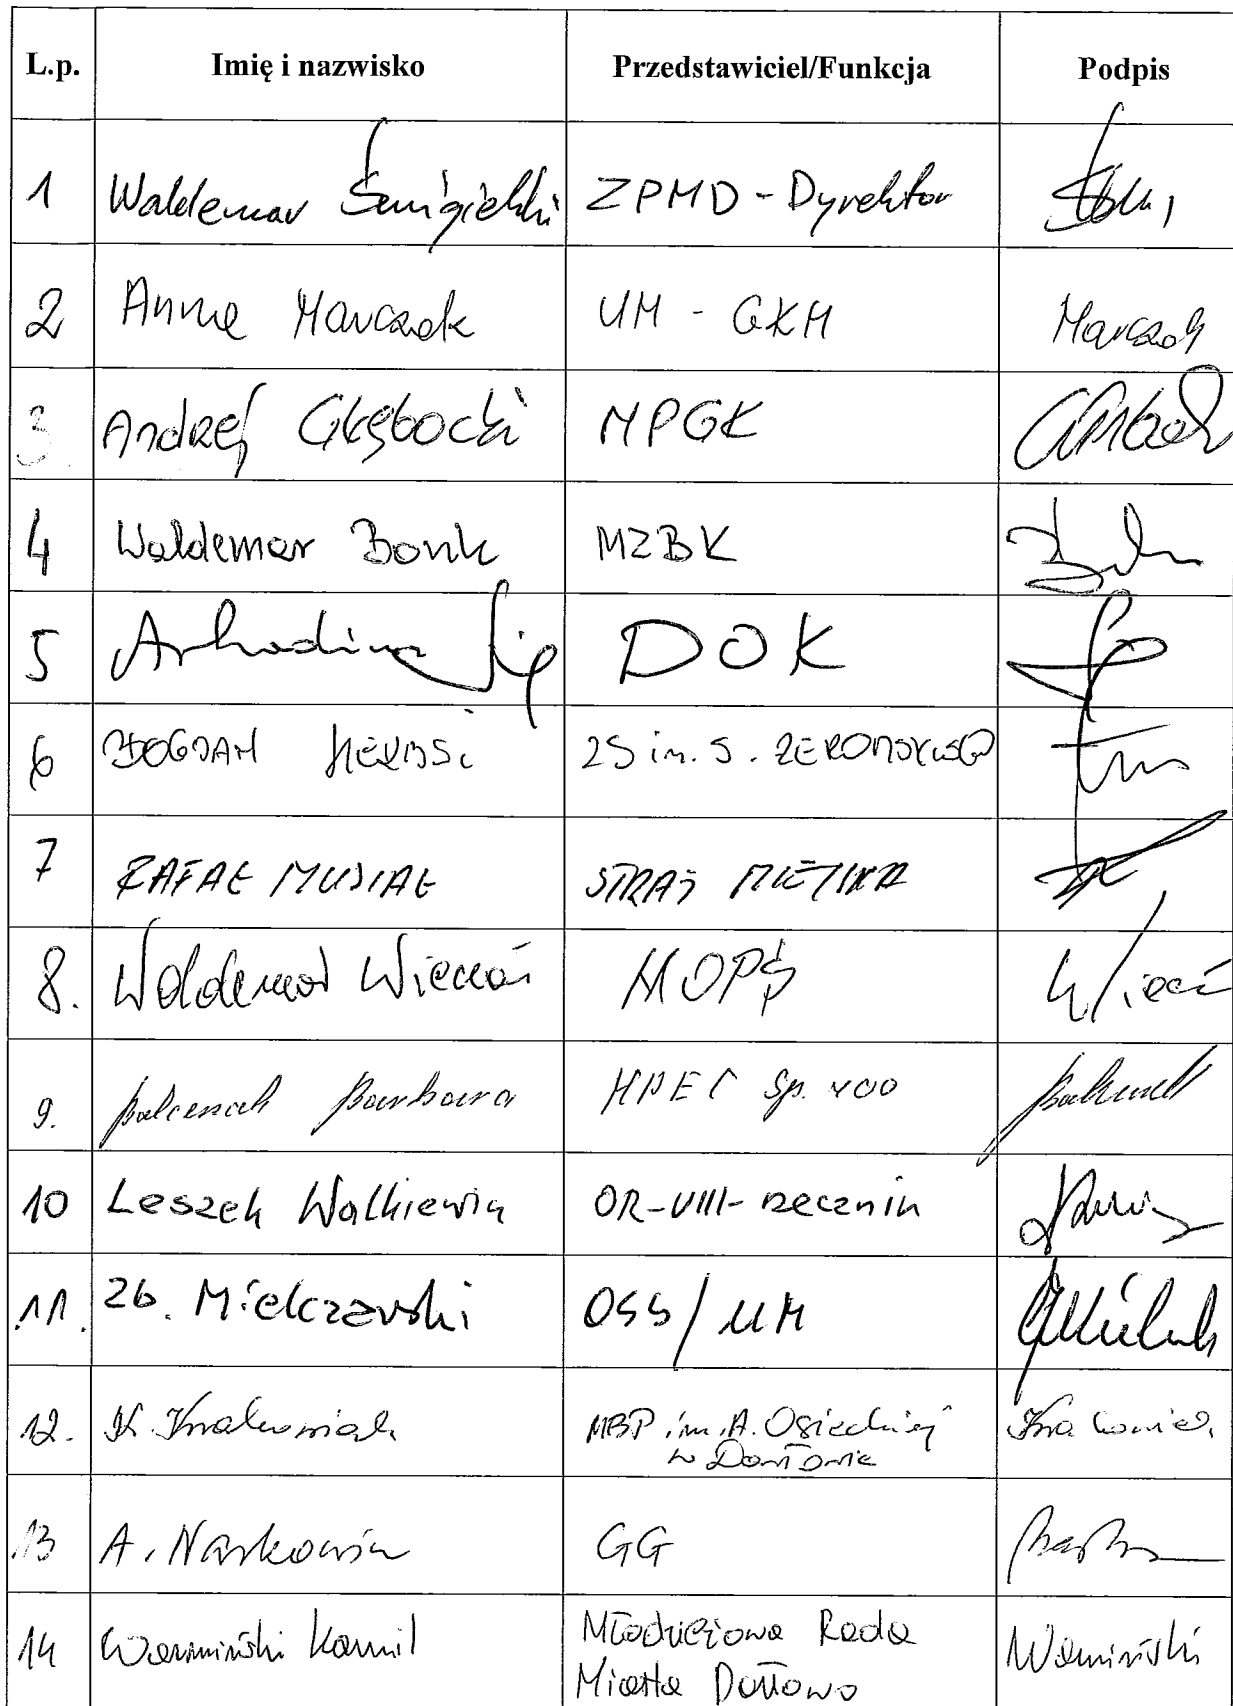 L.p. Imię i nazwisko Przedstawiciel/Funkcja Podpis
1 Waldemar Śmigielski ZPMD - Dyrektor
2 Anna Marczak UM - GKM Marczak
3. Andrzej Głębocki MPGK
4 Waldemar Bonk MZBK
5 Arkadiusz DOK
6 BOGDAN ZS im. S. ŻEROMSKIEGO
7 RAFAŁ MUSIAŁ STRAŻ MIEJSKA
8. Waldemar MOPS
9. Barbara MPEC Sp. z o o
10 Leszek Walkiewicz OR-VIII-rzecznik
11. Zb. Mielczarski OSS/UM
12. K. Krakowiak MBP im. A. Osieckiej
w Darłowie
13 A. Narkowicz GG
14 Warmiński Kamil Młodzieżowa Rada
Miasta Darłowo Warmiński